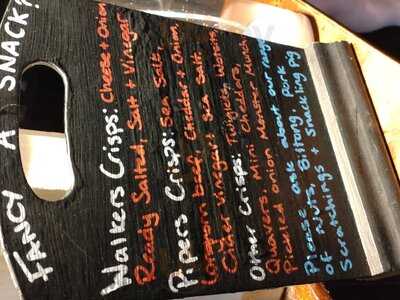 FANCY A SNACK?
Walkers Crisps: Cheese + Onion
Ready Salted, Salt + Vinegar
Pipers Crisps: Sea Salt,
Longhorn beef, Cheddar + Onion,
Cider Vinegar + Sea Salt.
Other Crisps: Twiglets, Wotsits,
Quavers, Mini Cheddars,
Pickled onion Monster Munch
Please ask about our range
of Nuts, Biltong, Pork
Scratchings + Snackling pig